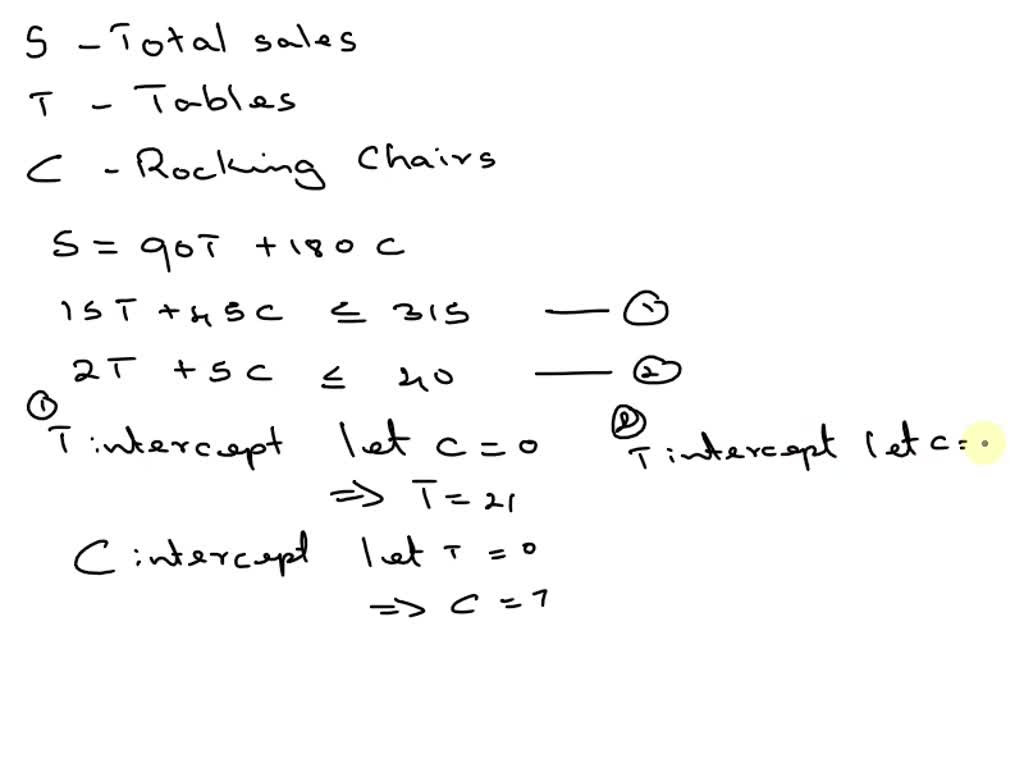 S - Total sales
T - Tables
C - Rocking Chairs
S = 90T + 180 C
15T + 45C ≤ 315 — ①
2T + 5C ≤ 40 — ②
① T intercept let C = 0
⇒ T = 21
C intercept let T = 0
⇒ C = 7
② T intercept let C =